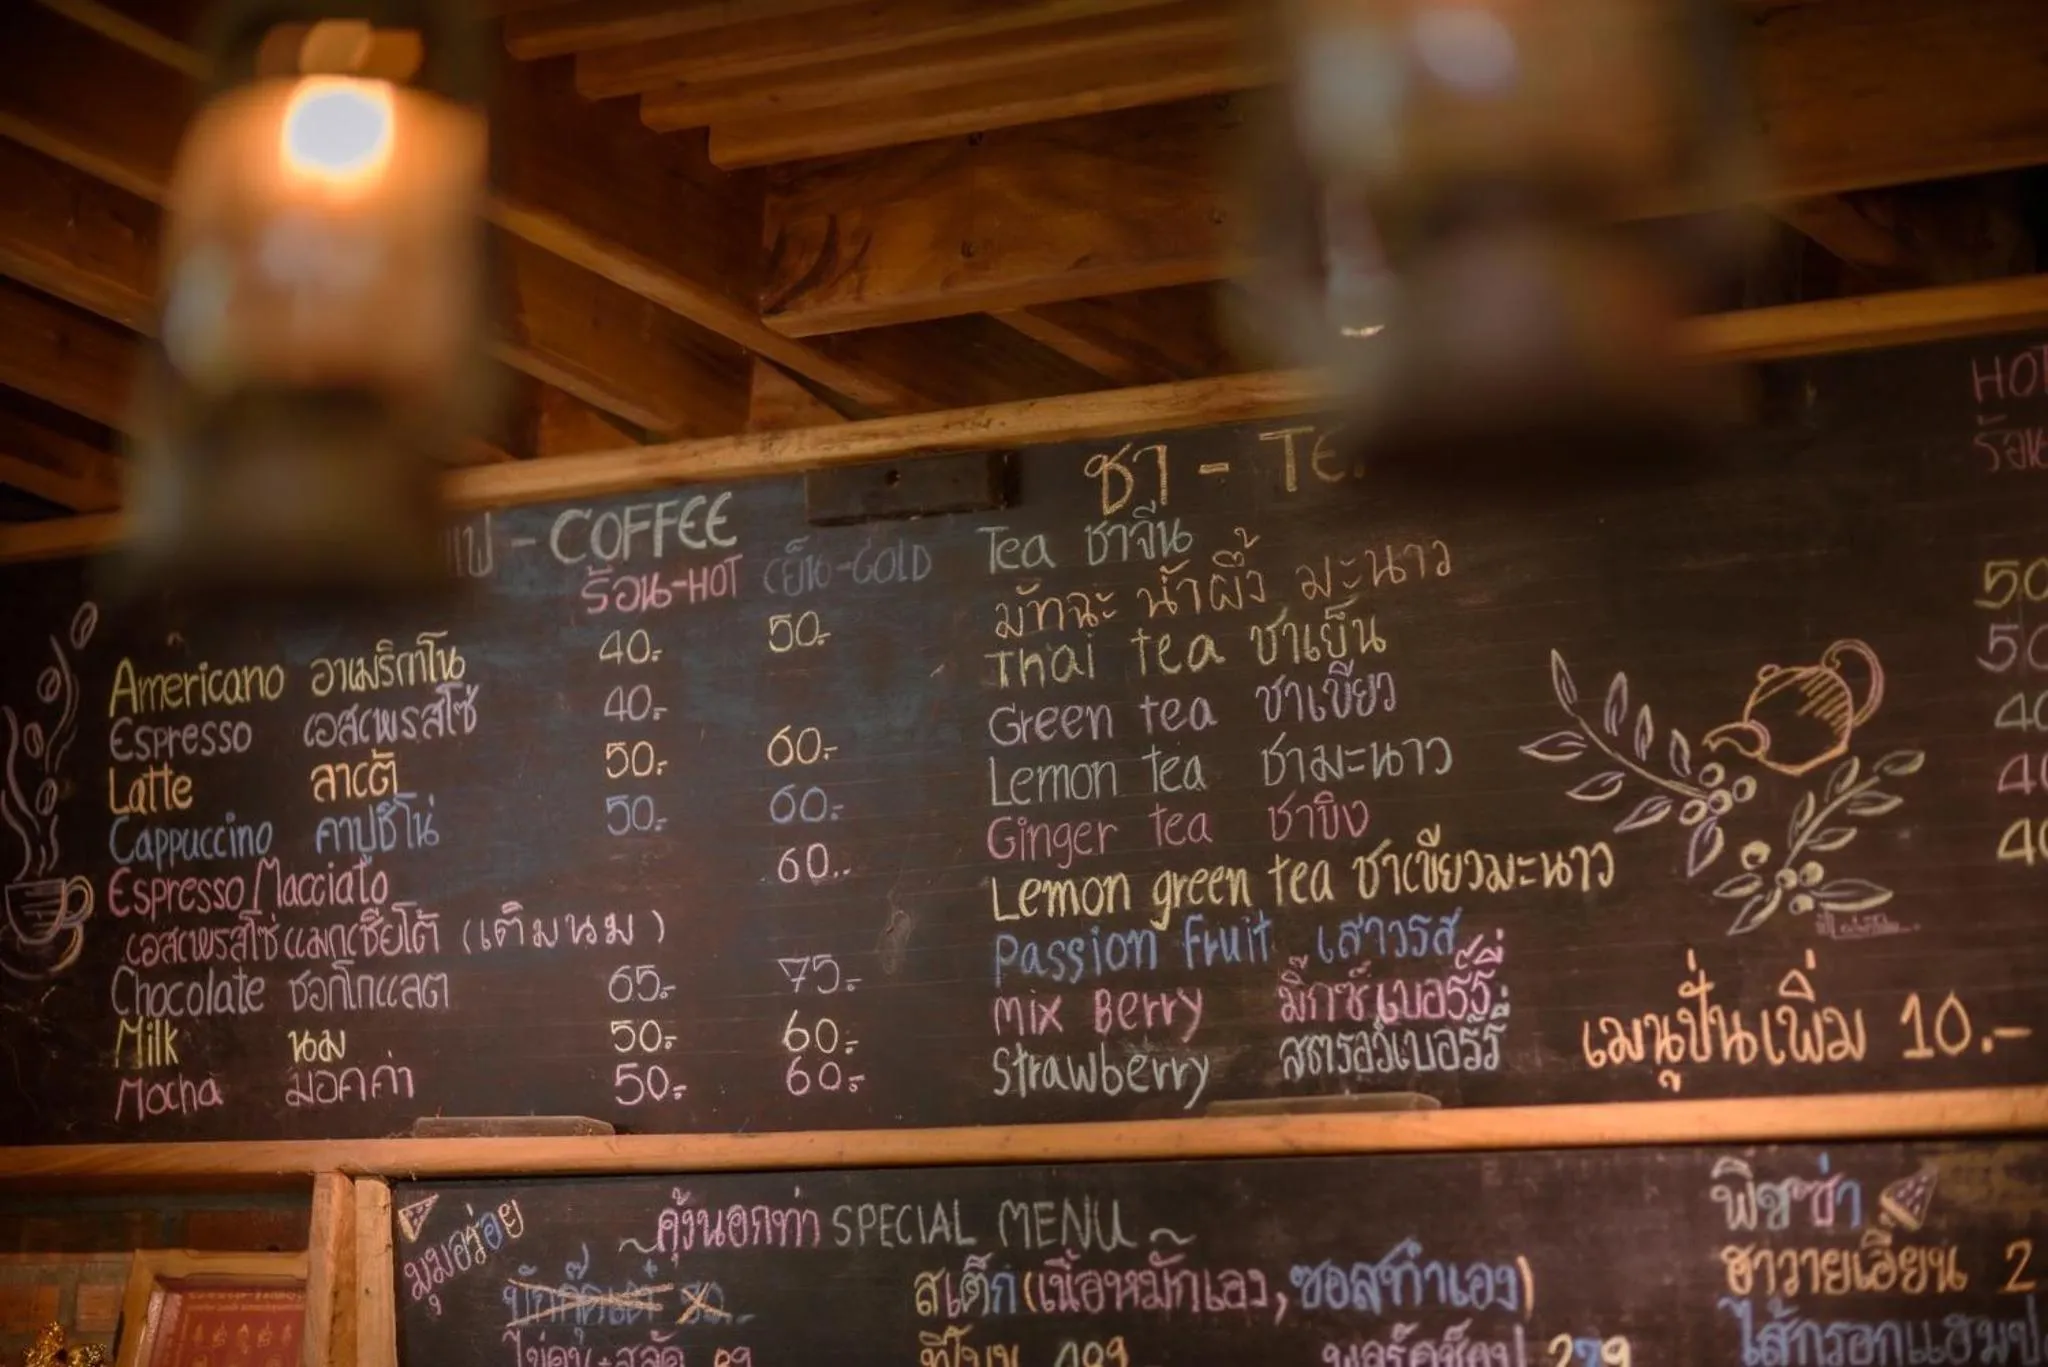 แฟ - COFFEE
ร้อน-HOT เย็น-COLD
Americano อาเมริกาโน 40.- 50.-
Espresso เอสเพรสโซ่ 40.-
Latte ลาเต้ 50.- 60.-
Cappuccino คาปูชิโน่ 50.- 60.-
Espresso Macciato 60..
เอสเพรสโซ่แมกเชียโต้ (เติมนม)
Chocolate ชอกโกแลต 65.- 75.-
Milk นม 50.- 60.-
Mocha มอคค่า 50.- 60.-
ชา - TE
HOT
ร้อน
Tea ชาจีน
มัทฉะ น้ำผึ้ง มะนาว 50
Thai tea ชาเย็น 50
Green tea ชาเขียว 40
Lemon tea ชามะนาว 40
Ginger tea ชาขิง 40
Lemon green tea ชาเขียวมะนาว
Passion Fruit เสาวรส
Mix Berry มิ๊กซ์เบอร์รี่
Strawberry สตรอว์เบอร์รี่
เมนูปั่นเพิ่ม 10.-
มุมอร่อย
~คุ้งนอกท่า SPECIAL MENU ~
สเต็ก(เนื้อหมักเอง,ซอสทำเอง)
พอร์คช็อป 279
พิซซ่า
ฮาวายเอี้ยน 2
ไส้กรอกแฮม